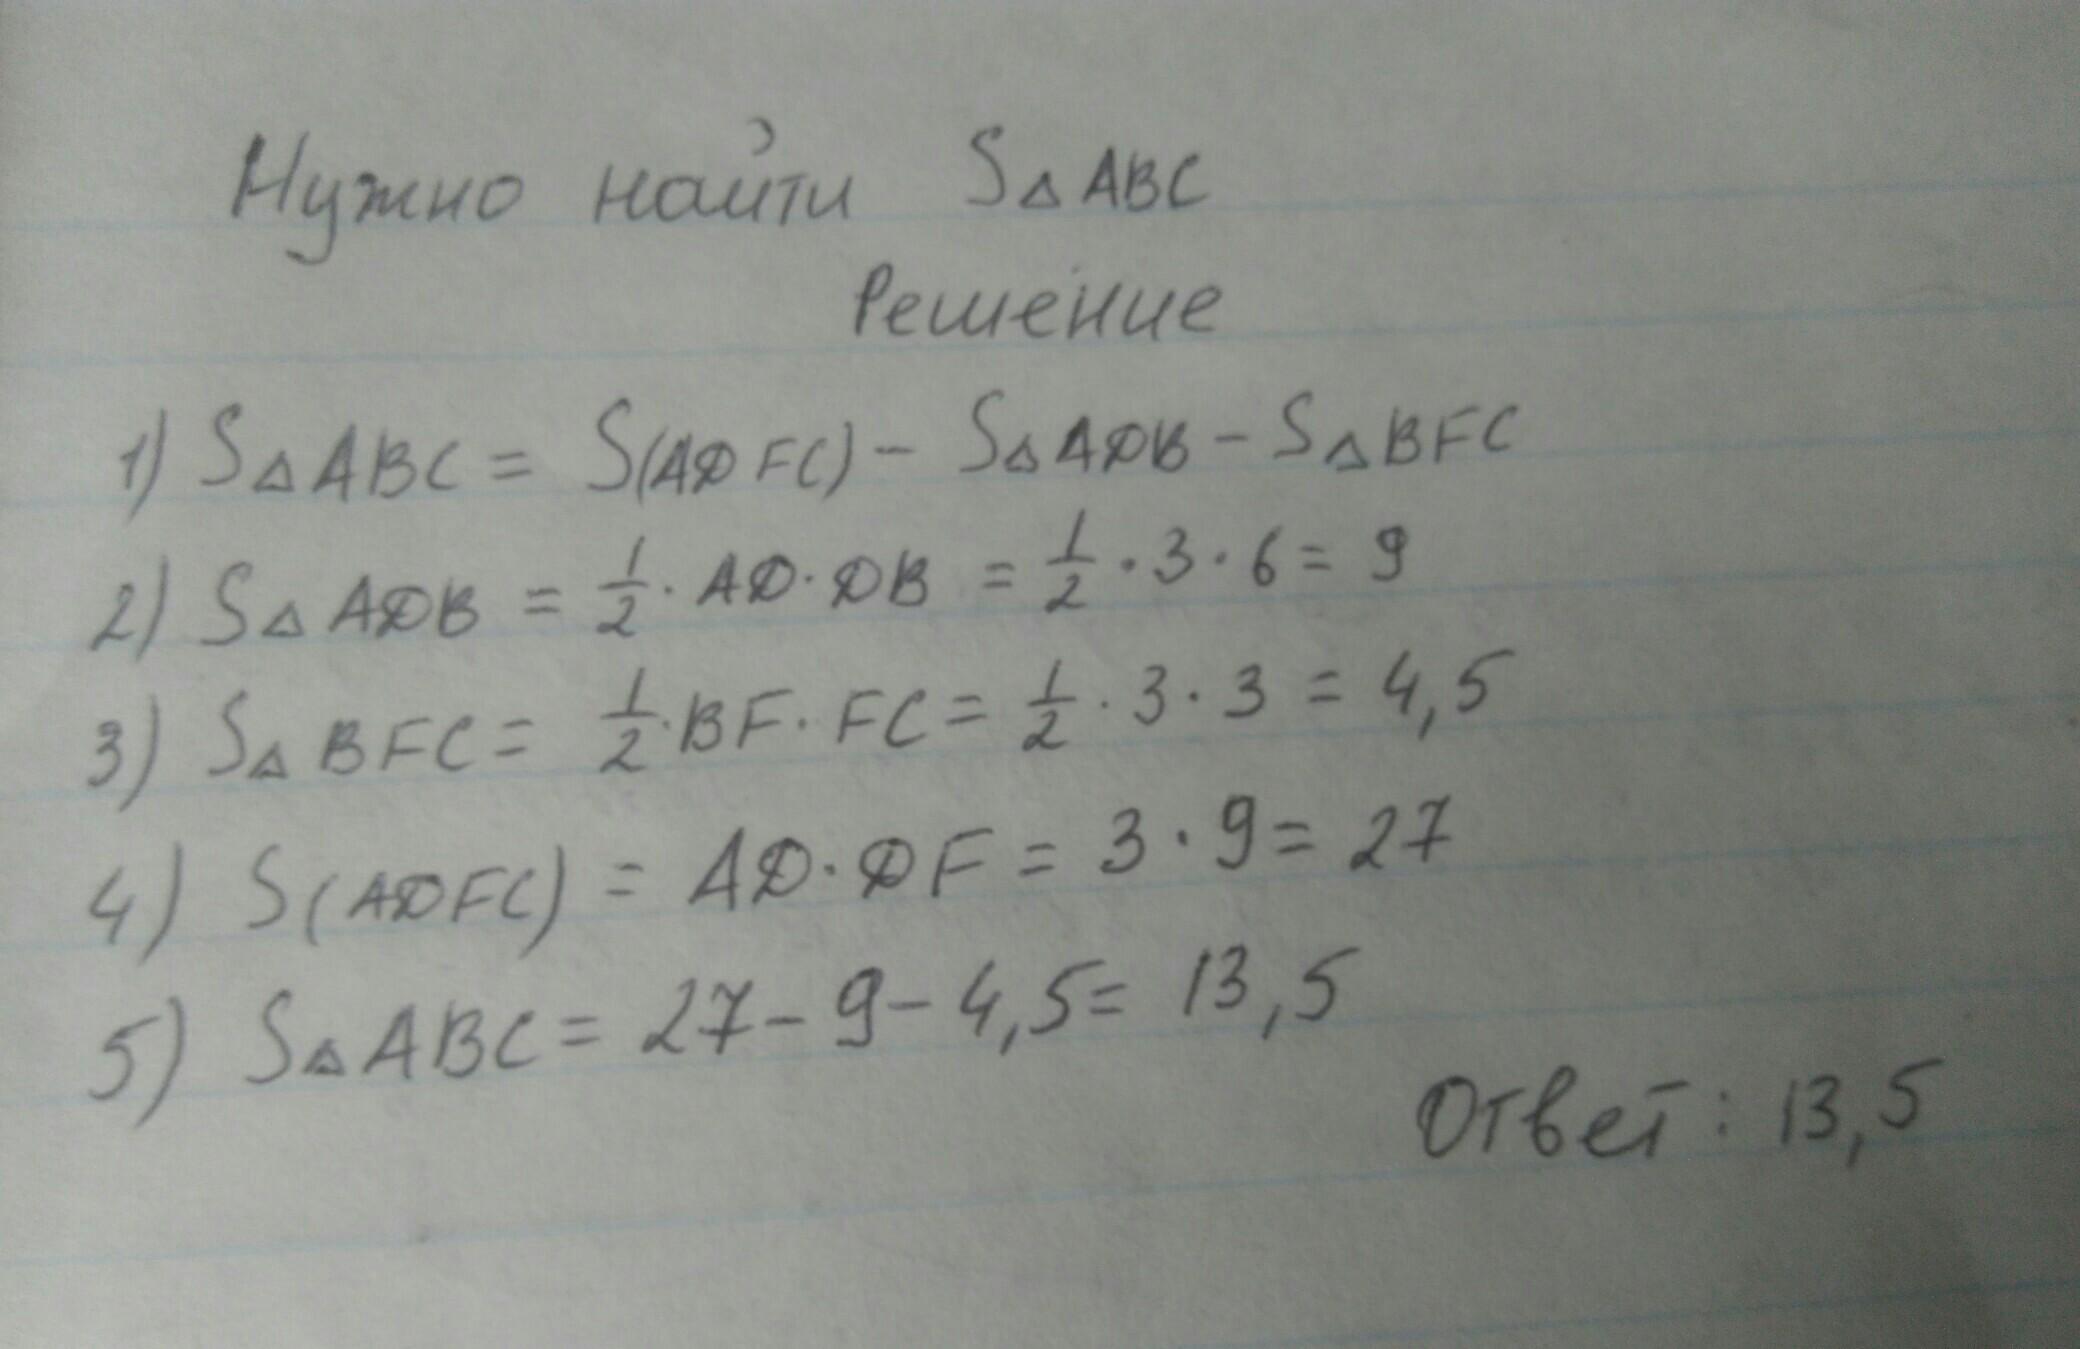 Нужно найти S△ABC
Решение
1) S△ABC = S(ADFC) - S△ADB - S△BFC
2) S△ADB = 1/2 · AD · DB = 1/2 · 3 · 6 = 9
3) S△BFC = 1/2 · BF · FC = 1/2 · 3 · 3 = 4,5
4) S(ADFC) = AD · DF = 3 · 9 = 27
5) S△ABC = 27 - 9 - 4,5 = 13,5
Ответ: 13,5